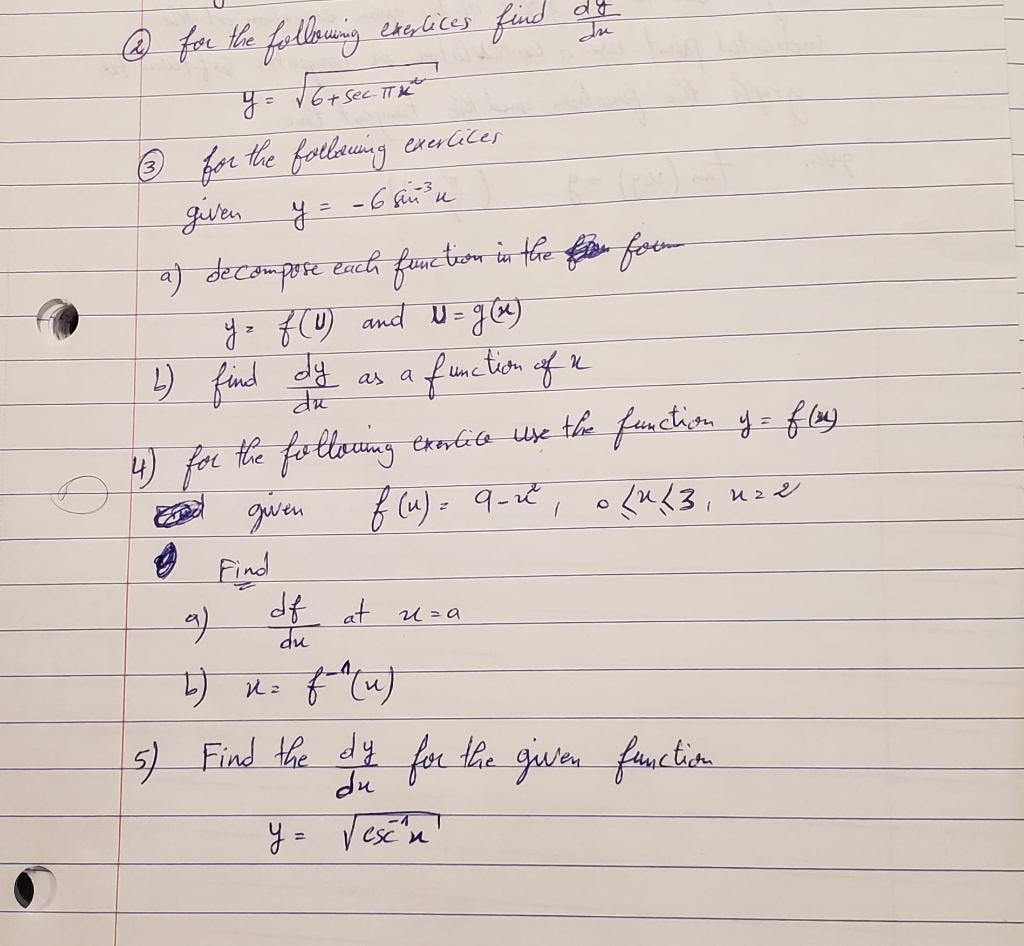 ② for the following exercices find dy/dx
y = √6 + sec πx²
③ for the following exercices
given y = -6 sin⁻³x
a) decompose each function in the form
y = f(U) and U = g(x)
b) find dy/dx as a function of x
4) for the following exercice use the function y = f(x)
given f(x) = 9 - x², 0 ≤ x ≤ 3, x = 2
Find
a) df/dx at x = a
b) x = f⁻¹(x)
5) Find the dy/dx for the given function
y = √csc⁻¹x